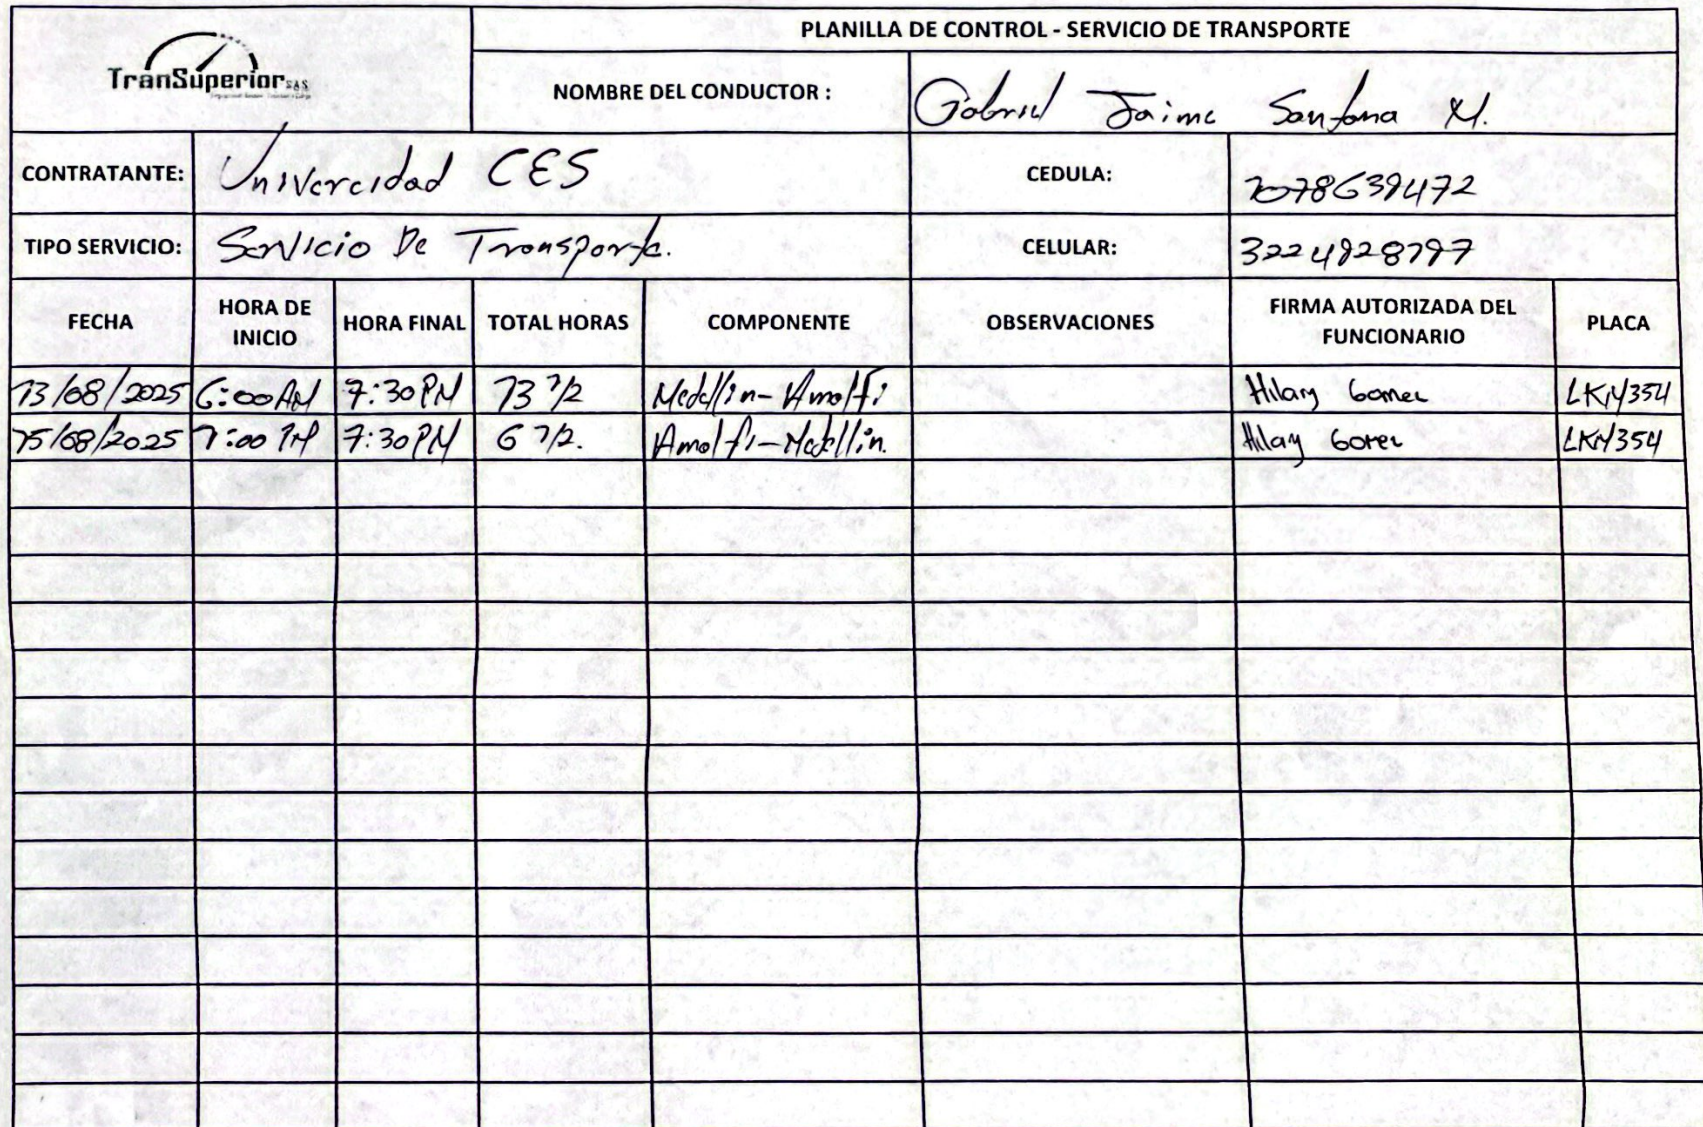 PLANILLA DE CONTROL - SERVICIO DE TRANSPORTE
TranSuperior S.A.S
NOMBRE DEL CONDUCTOR : Gabriel Jaime Santana M.
CONTRATANTE: Univercidad CES CEDULA: 1078639472
TIPO SERVICIO: Servicio De Transporte. CELULAR:
FECHA HORA DE INICIO HORA FINAL TOTAL HORAS COMPONENTE OBSERVACIONES FIRMA AUTORIZADA DEL FUNCIONARIO PLACA
13/08/2025 6:00 AM 7:30 PM 13 1/2 Medellin-Amalfi Hilary Gomez LKM354
15/08/2025 1:00 PM 7:30 PM 6 1/2. Amalfi-Medellin. Hilary Gomez LKM354